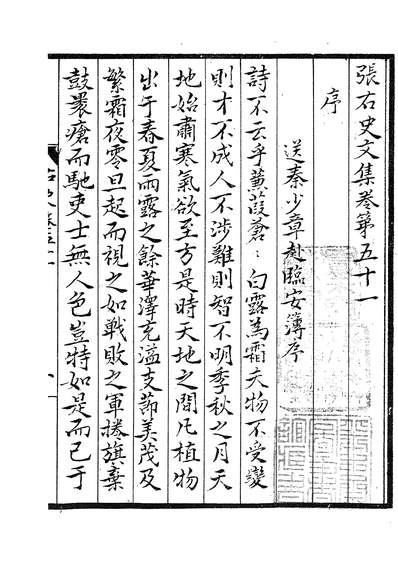 張右史文集卷第五十一
序
送秦少章赴臨安簿序
詩不云乎蒹葭蒼〻白露為霜夫物不受變
則才不成人不涉難則智不明季秋之月天
地始肅寒氣欲至方是時天地之間凡植物
出于春夏雨露之餘華澤充溢支莭美茂及
繁霜夜零旦起而視之如戰敗之軍捲旗棄
鼓裹瘡而馳吏士無人色豈特如是而已于